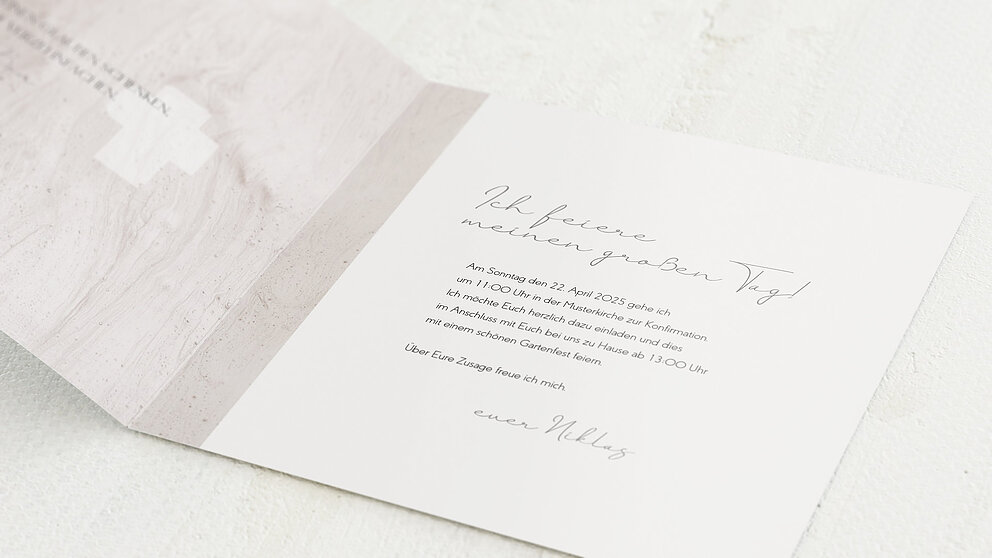 SCHENKEN,
Ich feiere
meinen großen Tag!
Am Sonntag den 22. April 2025 gehe ich
um 11:00 Uhr in der Musterkirche zur Konfirmation.
Ich möchte Euch herzlich dazu einladen und dies
im Anschluss mit Euch bei uns zu Hause ab 13:00 Uhr
mit einem schönen Gartenfest feiern.
Über Eure Zusage freue ich mich.
euer Niklas